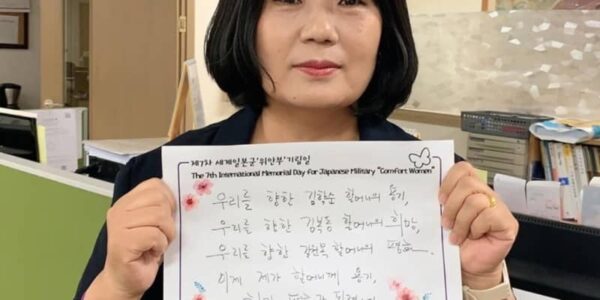 제7차 세계일본군'위안부'기림일
The 7th International Memorial Day for Japanese Military "Comfort Women"
우리를 향한 김학순 할머니의 용기,
우리를 향한 김복동 할머니의 희망,
우리를 향한 길원옥 할머니의 평화.
이게 제가 할머니께 용기,